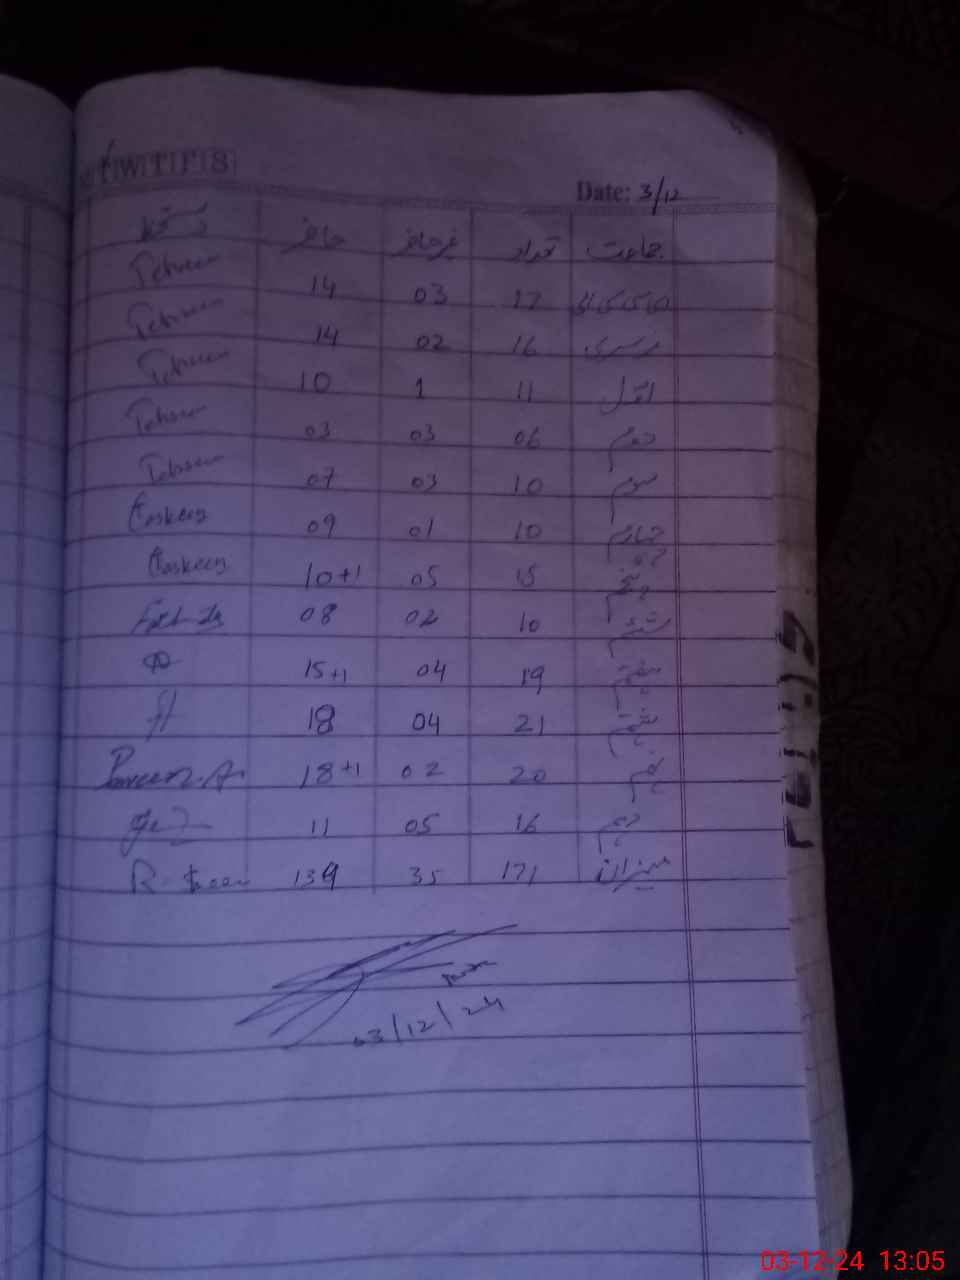 M T W T F S
Date: 3/12
جماعت تعداد غیرحاضر حاضر دستخط
17 03 14 Tehseen
نرسری 16 02 14 Tehseen
اول 11 1 10 Tehseen
دوم 06 03 03 Tehseen
سوم 10 03 07 Tehseen
چہارم 10 01 09
پنجم 15 05 10+1
ششم 10 02 08
ہفتم 19 04 15+1
ہشتم 21 04 18
نہم 20 02 18+1 Parveen.A
دہم 16 05 11
میزان 171 35 139
03/12/24
03-12-24 13:05